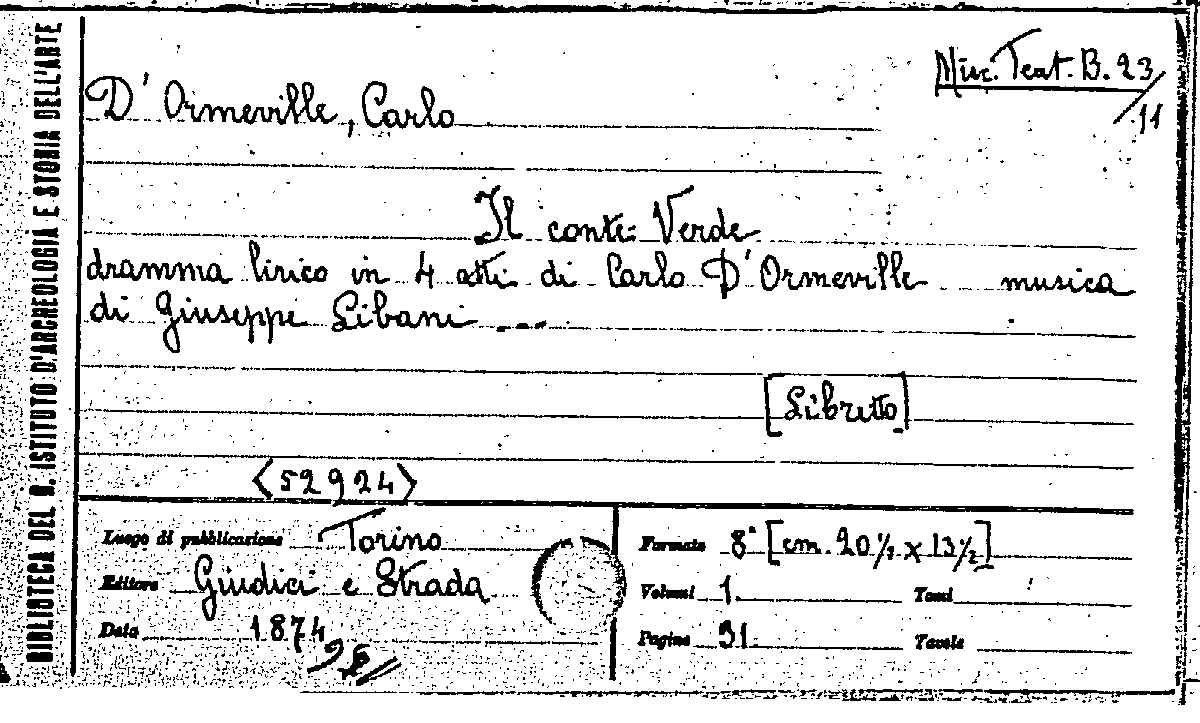 BIBLIOTECA DEL R. ISTITUTO D'ARCHEOLOGIA E STORIA DELL'ARTE
Misc. Teat. B. 23/11
D'Ormeville, Carlo
Il conte Verde
dramma lirico in 4 atti di Carlo D'Ormeville musica
di Giuseppe Libani ---
[Libretto]
<52924>
Luogo di pubblicazione Torino
Editore Giudici e Strada
Data 1874
Formato 8° [cm. 20½ x 13½]
Volumi 1. Tomi
Pagine 31. Tavole